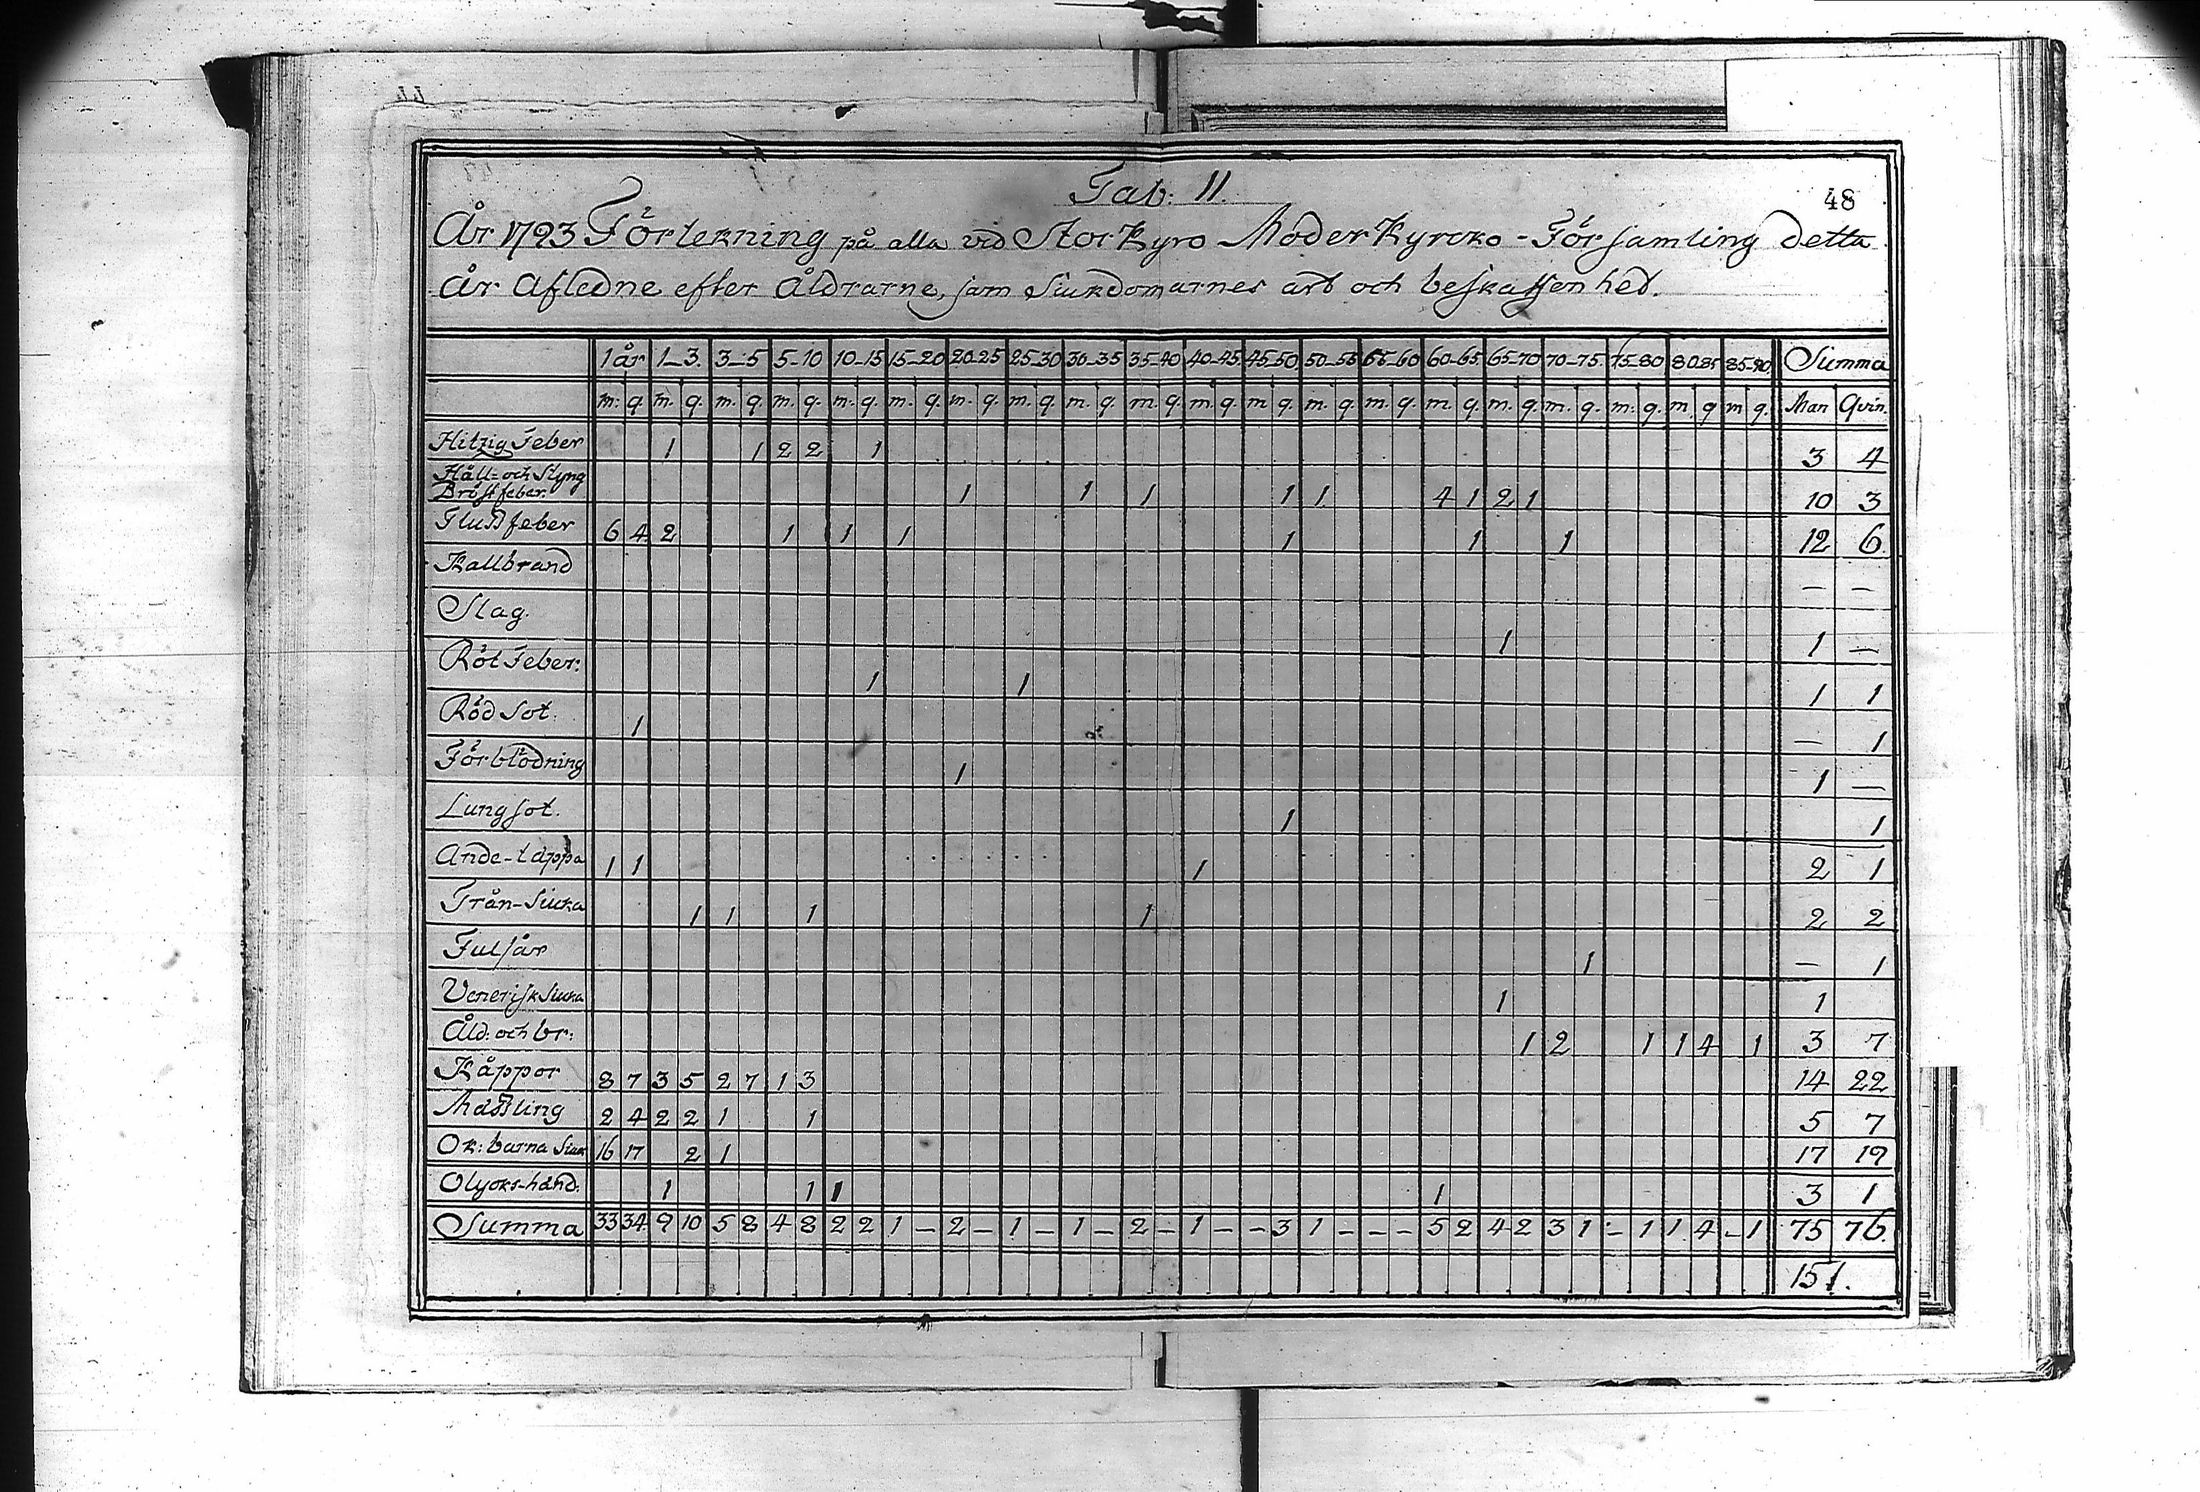 Tab: 11.
48
År 1793 Förtekning på alla vid Stor Kyro Moder Kyrcko-Församling detta
År Afledne efter Åldrarne, sam Siukdomarnes art och beskaffenhet.
1 år 1-3. 3-5 5-10 10-15 15-20 20-25 25-30 30-35 35-40 40-45 45-50 50-55 55-60 60-65 65-70 70-75. 75-80 80-85 85-90 Summa
m: q. m. q. m. q. m. q. m. q. m. q. m. q. m. q. m. q. m. q. m. q. m q. m. q. m. q. m. q. m. q. m. q. m. q. m. q m q. Man Qvin.
Hitzig Feber 1 1 2 2 1 3 4
Håll- och Styng
Bröstfeber. 1 1 1 1 1 4 1 2 1 10 3
Flussfeber 6 4 2 1 1 1 1 1 1 12 6.
Kallbrand — —
Slag. 1 1 —
Röt Feber: 1 1 1 1
Röd Sot. 1 — 1
Förblödning 1 1 —
Lungsot. 1 1
Ande-täppa 1 1 1 2 1
Trån-Siuka 1 1 1 1 2 2
Fulsår 1 — 1
Venerisk Siuka 1 1
Åld: och br: 1 2 1 1 4 1 3 7
Kåppor 8 7 3 5 2 7 1 3 14 22
Mässling 2 4 2 2 1 1 5 7
Ok: barna Siuk 16 17 2 1 17 19
Olycks-händ. 1 1 1 1 3 1
Summa 33 34 9 10 5 8 4 8 2 2 1 – 2 – 1 – 1 – 2 – 1 – – 3 1 – – – 5 2 4 2 3 1 – 1 1 4 – 1 75 76.
151.